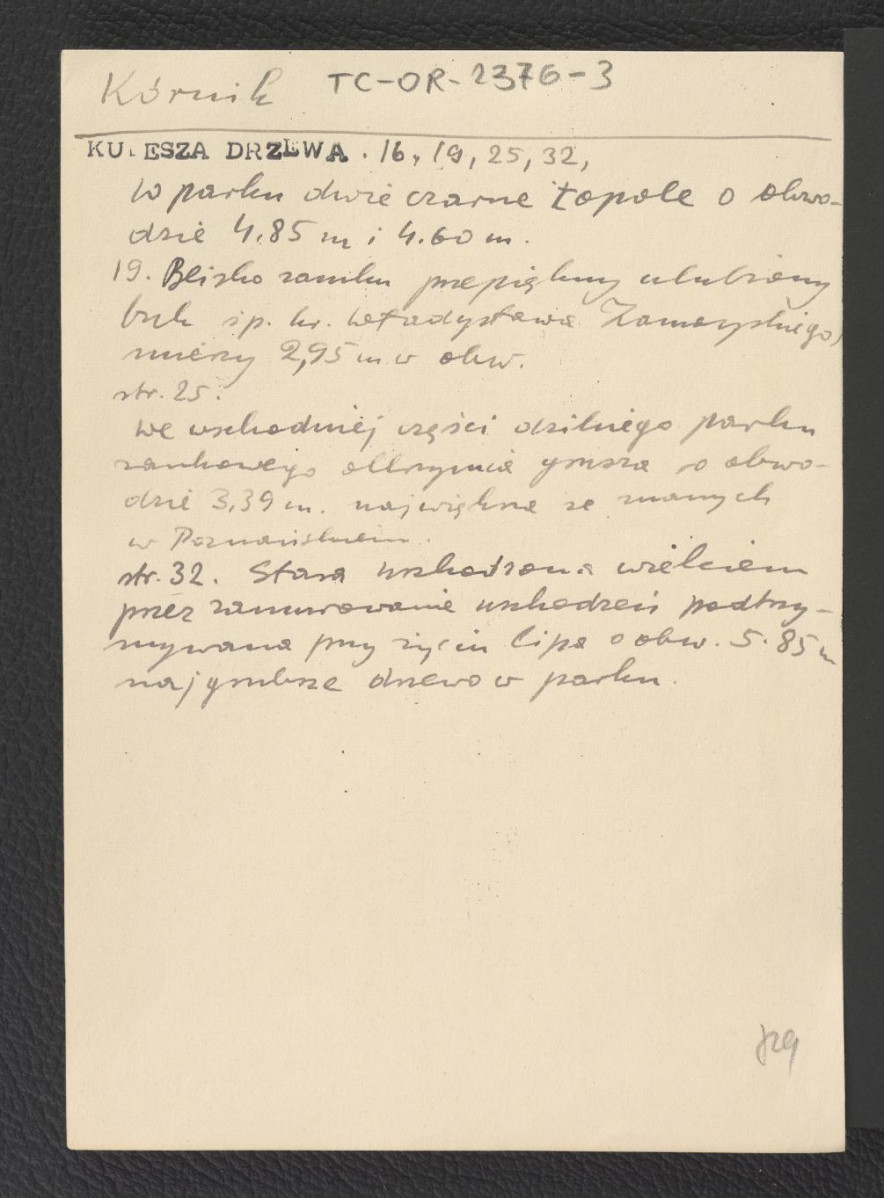 Kórnik TC-OR-2376-3
KULESZA DRZEWA . 16, 19, 25, 32,
W parku dwie czarne topole o obwo-
dzie 4.85 m i 4.60 m.
19. Blisko zamku przepiękny ulubiony
buk śp. hr. Władysława Zamoyskiego,
mierzy 2,95 m w obw.
str. 25.
We wschodniej części dzikiego parku
zamkowego olbrzymia grusza o obwo-
dzie 3,39 m. największa ze znanych
w Poznańskiem.
str. 32. Stara uszkodzona wiekiem
przez zamurowanie uszkodzeń podtrzy-
mywana przy życiu lipa o obw. 5.85 m
najgrubsze drzewo w parku.